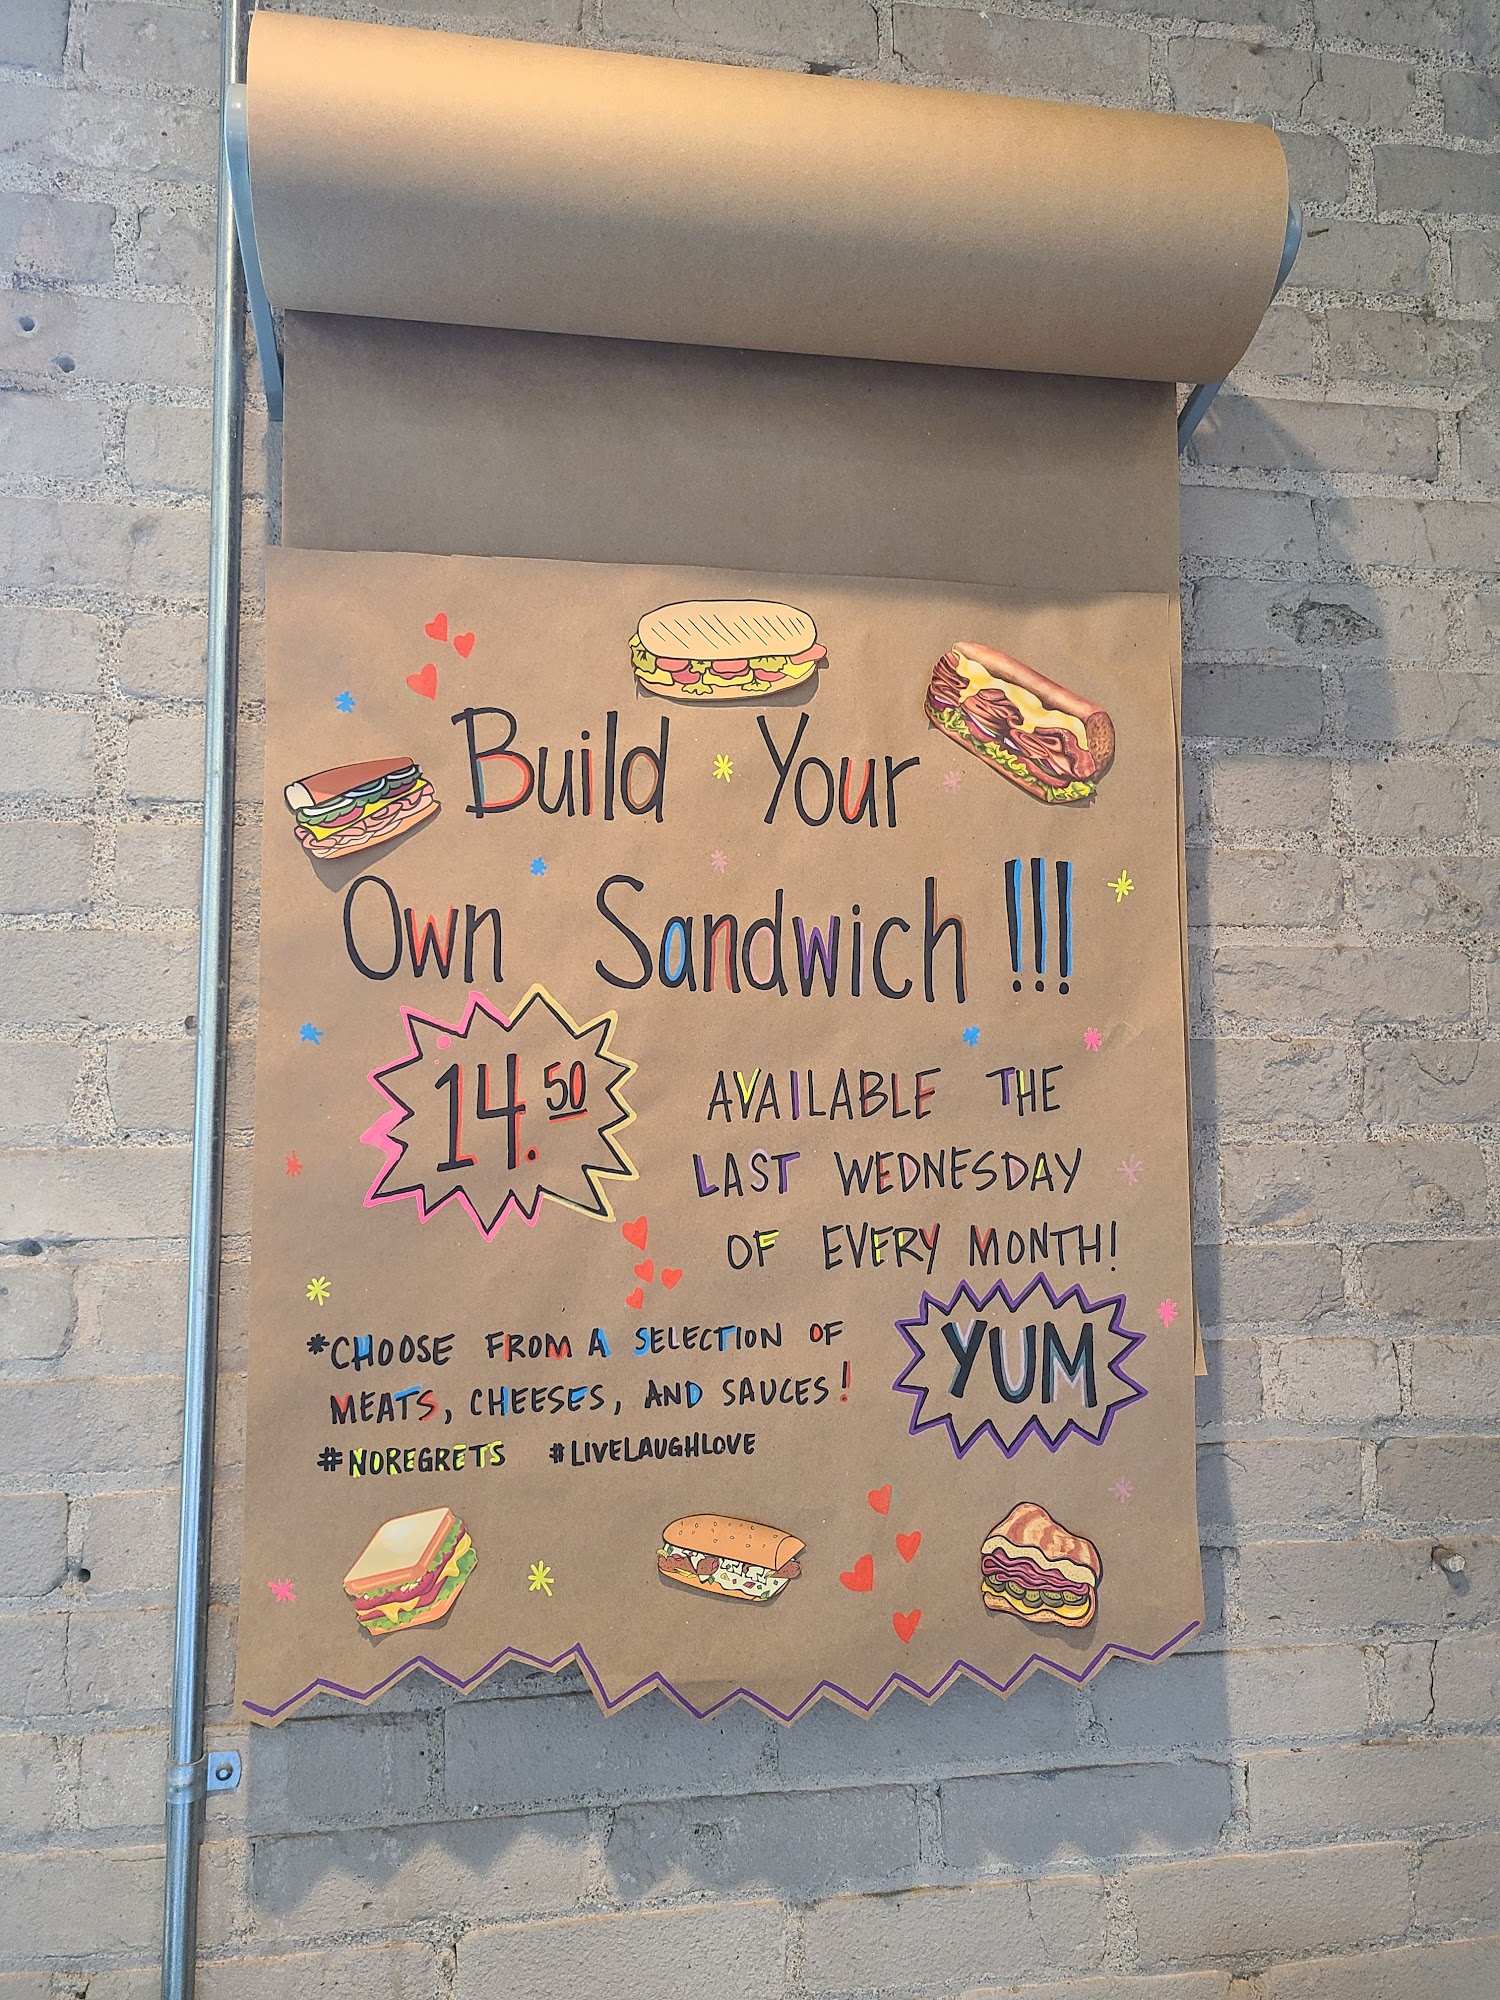 Build Your
Own Sandwich !!!
14.50
AVAILABLE THE
LAST WEDNESDAY
OF EVERY MONTH!
*CHOOSE FROM A SELECTION OF
MEATS, CHEESES, AND SAUCES!
#NOREGRETS #LIVELAUGHLOVE
YUM